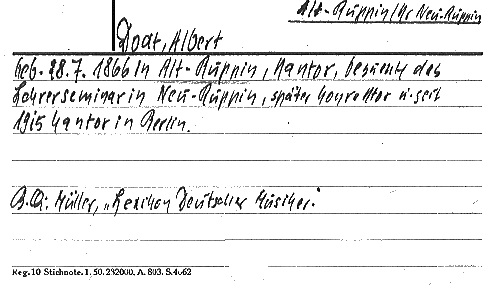 Alt-Ruppin/Kr Neu-Ruppin
Doat, Albert
Geb. 28.7. 1866 in Alt-Ruppin, Kantor, besuchte das
Lehrerseminar in Neu-Ruppin, später Konrektor u. seit
1915 Kantor in Berlin.
B.Qu: Müller, „Lexikon Deutscher Musiker."
Reg. 10 Stichnote. 1. 50. 232000. A. 803. S. 4062